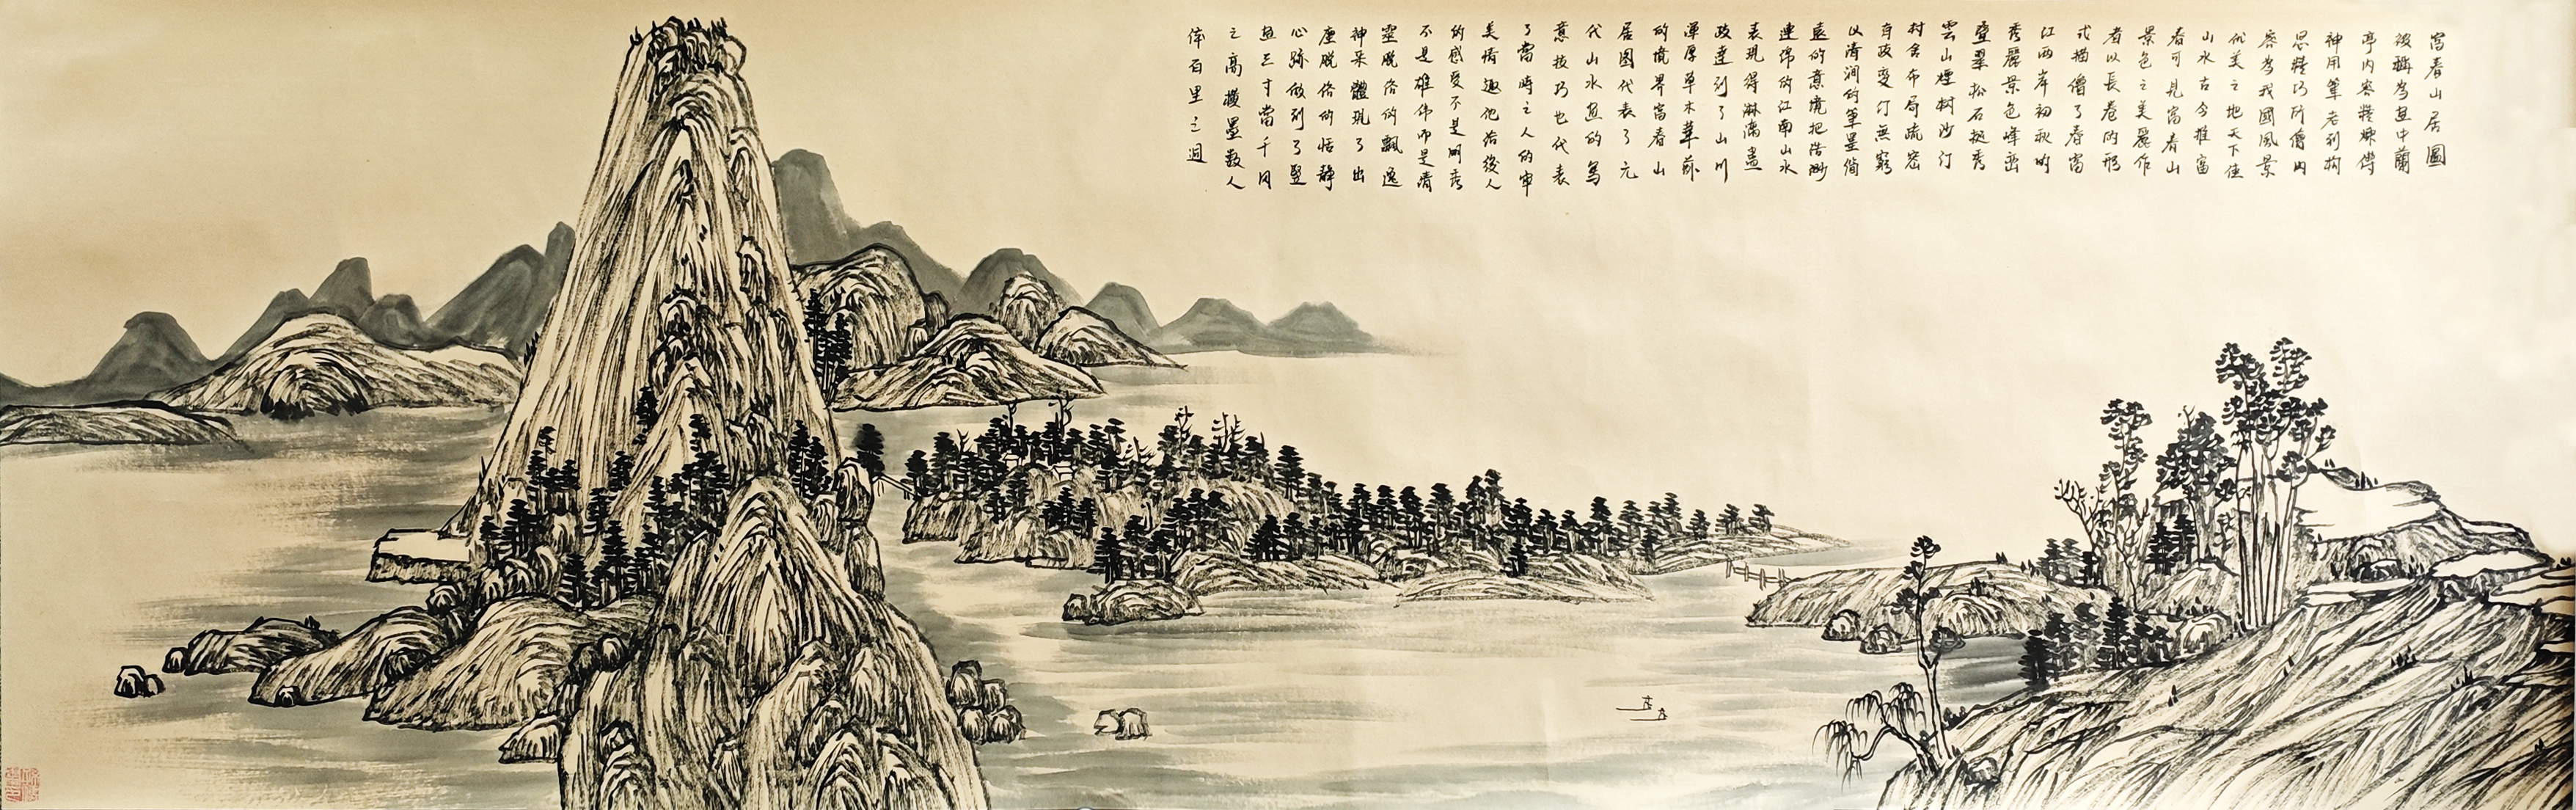 富春山居圖
被稱為畫中蘭
亭内容精煉傳
神用筆老利构
思精巧所僧内
容為我國風景
优美之地天下佳
山水古今推富
春可見富春山
景色之美麗作
者以長卷的形
式描僧了春富
江两岸初秋的
秀麗景色峰巒
疊翠松石挺秀
雲山煙树沙汀
村舍布局疏密
有致变汀無窮
以清潤的筆墨簡
遠的意境把浩渺
連绵的江南山水
表現得淋漓盡
致達到了山川
渾厚草木華茲
的境界富春山
居图代表了元
代山水画的笔
意技巧也代表
了當時文人的审
美情趣他给後人
的感受不是明秀
不是雄伟而是清
靈脱俗的飄逸
神采體现了出
塵脱俗的恬靜
心跡做到了竪
画三寸當千仞
之高横墨数人
体百里之迥